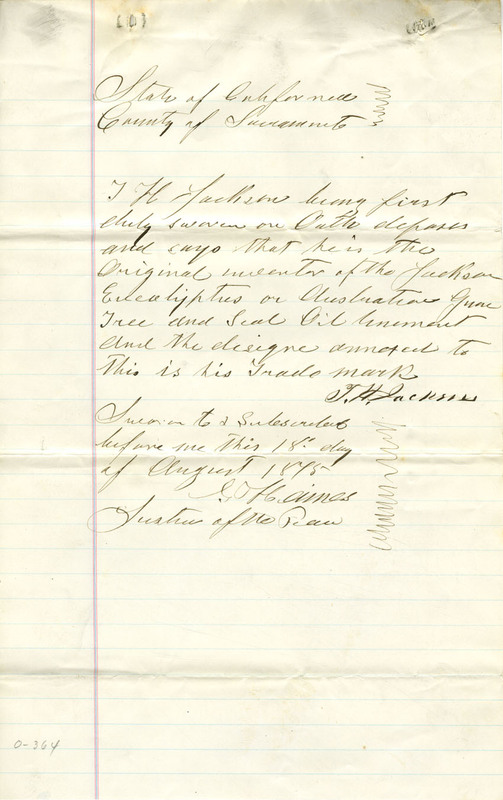 State of California
County of Sacramento
T H Jackson being first
duly sworn on Oath deposes
and says that he is the
Original inventor of the Jackson
Eucalyptus or Australian Gum
Tree and Seal Oil liniment
and the disigne annexed to
this is his Trade mark
T. H. Jackson
Sworn to & Subscribed
before me this 18th day
of August 1875
Haines
Justice of the Peace
0-364